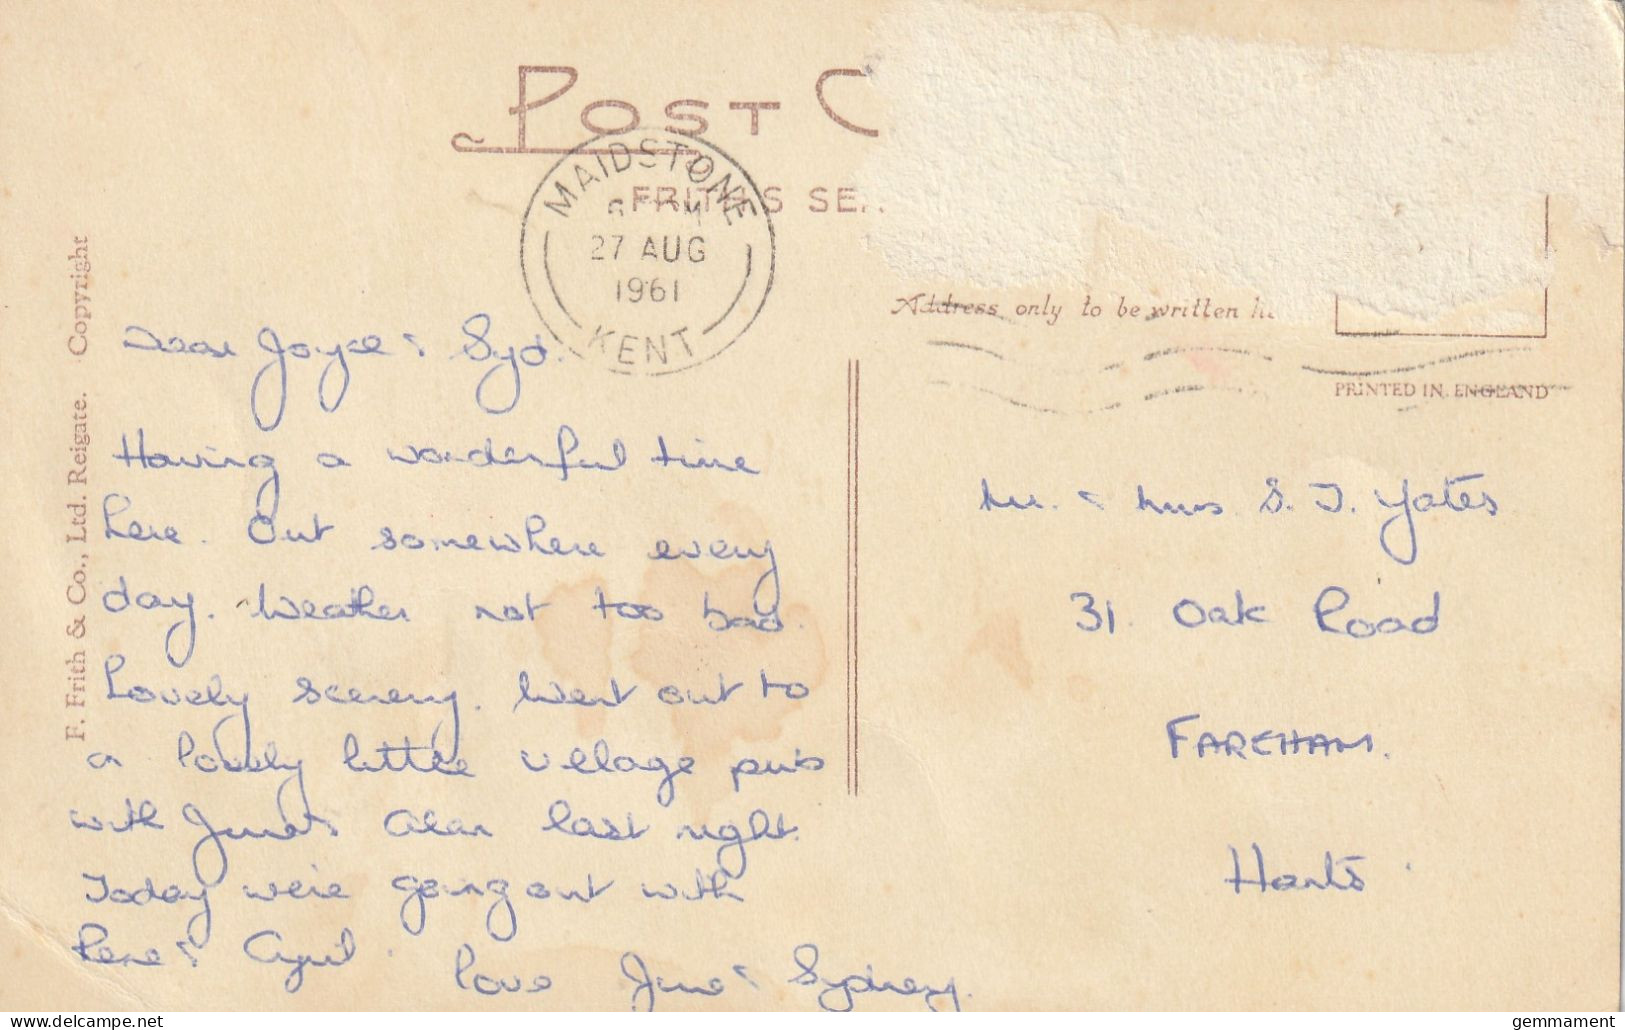 POST C
FRITH'S SER
MAIDSTONE
27 AUG
1961
KENT
F. Frith & Co., Ltd. Reigate. Copyright
Address only to be written
PRINTED IN ENGLAND
Dear Joyce & Syd.
Having a wonderful time
here. Out somewhere every
day. Weather not too bad.
Lovely scenery. Went out to
a lovely little village pub
with June & Alan last night.
Today we're going out with
Rene & Cyril.
Love June & Sydney.
Mr. & Mrs S. J. Yates
31. Oak Road
FAREHAM.
Hants.
delcampe.net
gemmament